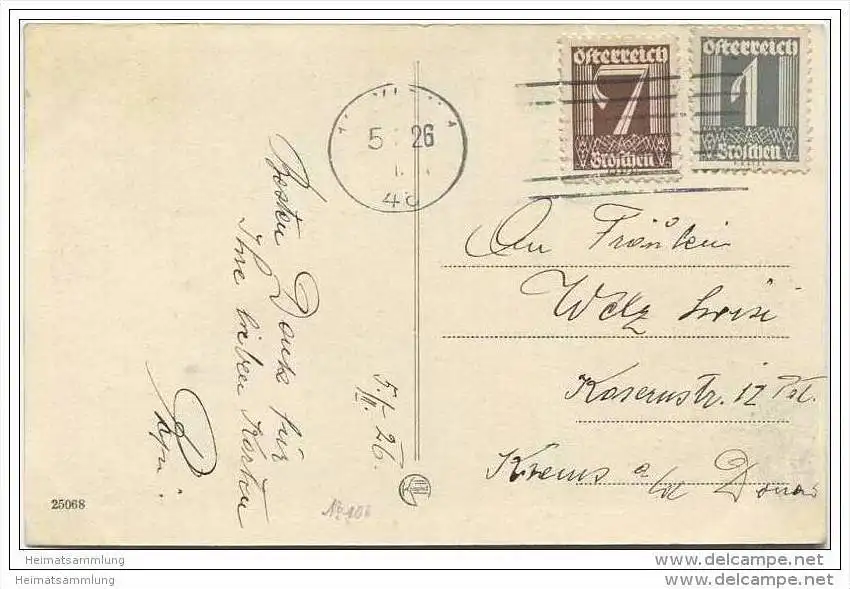 Österreich
7
Groschen
Österreich
1
Groschen
5 26
1
An Fräulein
Welz Luise
Kasernstr. 12 Pt.
Krems a/d Donau
Besten Dank für
Ihre lieben Karten
5./II. 26.
25068
No 106
Heimatsammlung
delcampe.net
Heimatsammlung
delcampe.net